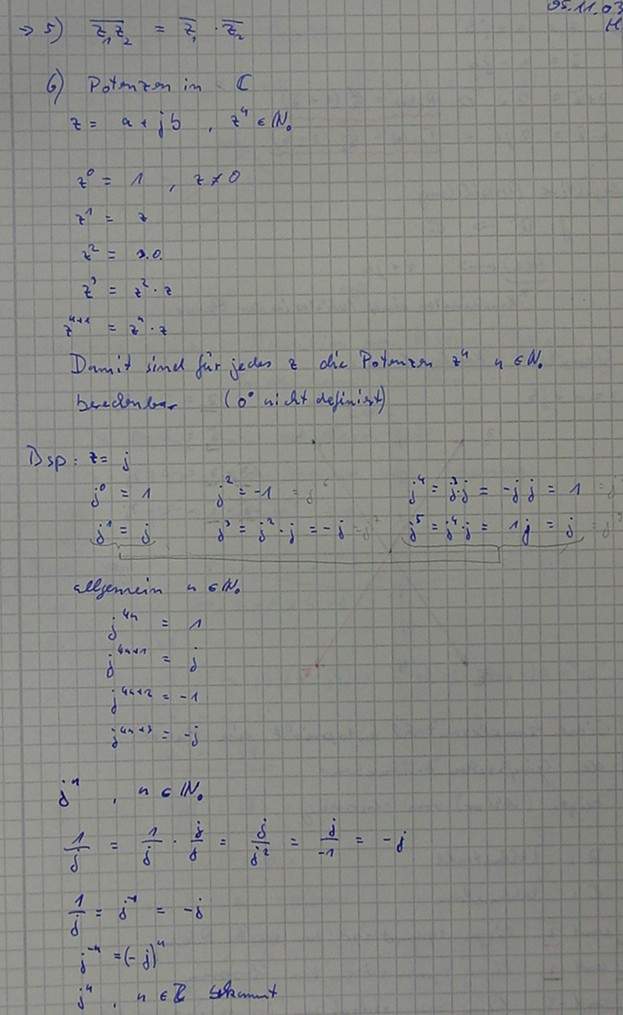 05.11.03
→ 5) \overline{z_1 z_2} = \overline{z_1} · \overline{z_2}
6) Potenzen in ℂ
z = a + jb , z^n ∈ ℕ₀
z^0 = 1 , z ≠ 0
z^1 = z
z^2 = s.o.
z^3 = z^2 · z
z^{n+1} = z^n · z
Damit sind für jedes z die Potenzen z^n n ∈ ℕ₀
berechenbar (0^0 nicht definiert)
Bsp: z = j
j^0 = 1 j^2 = -1 = j^6 j^4 = j^3·j = -j j = 1 = j
j^1 = j j^3 = j^2 · j = -j = j^7 j^5 = j^4·j = 1j = j = j
allgemein n ∈ ℕ₀
j^{4n} = 1
j^{4n+1} = j
j^{4n+2} = -1
j^{4n+3} = -j
j^n , n ∈ ℕ₀
1/j = 1/j · j/j = j/j^2 = j/-1 = -j
1/j = j^{-1} = -j
j^{-n} = (-j)^n
j^n , n ∈ ℤ bekannt